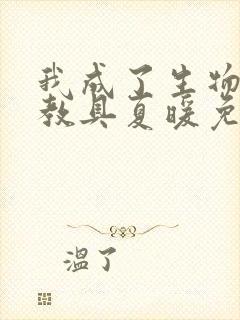 我成了生物
教具夏暖免
温了